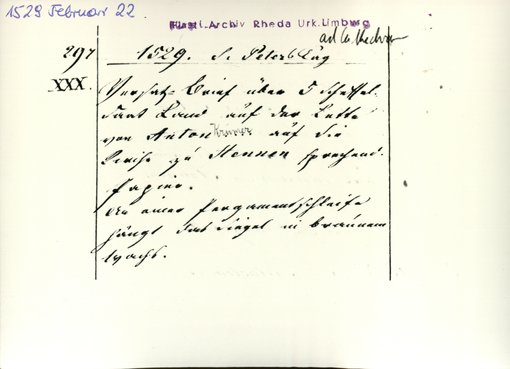 1529 Februar 22
Fürstl. Archiv Rheda Urk. Limburg
297
1529. S. Peters Tag
XXX.
Versatz-Brief über 5 Scheffel-
saat Land auf der Lette
von Anton auf die
Kirche zu Hennen sprechend.
Papier.
An einer Pergamentschleife
hängt das Siegel in braunem
Wachs.